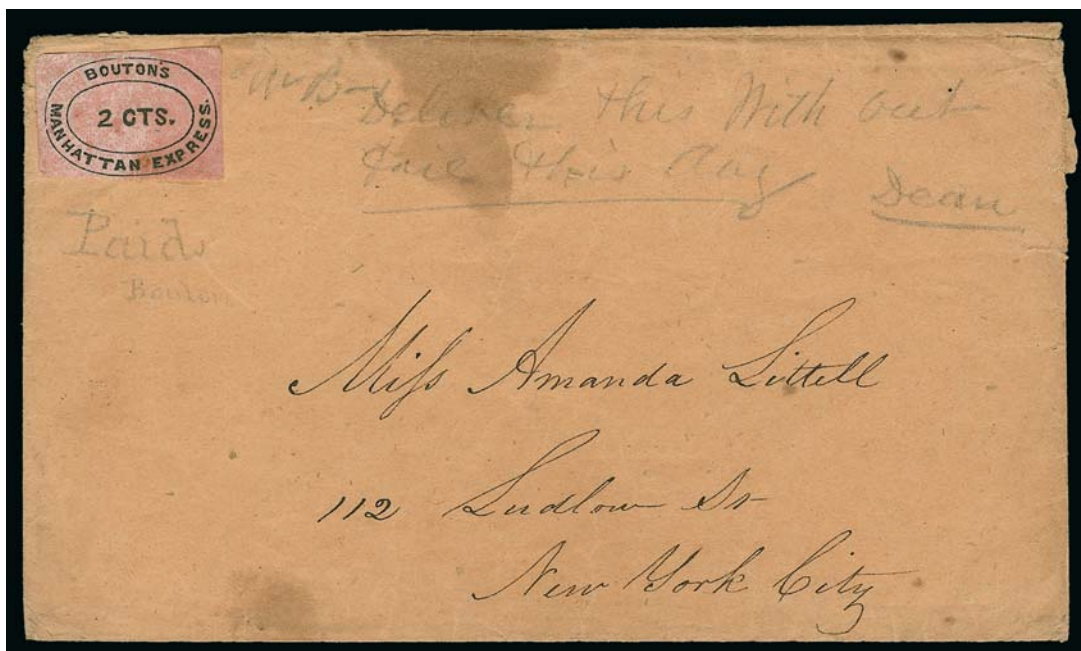 BOUTON'S
2 CTS.
MANHATTAN EXPRESS.
Mr B— Deliver this With out
fail this Day
Dean
Paid
Bouton
Miſs Amanda Littell
112 Ludlow St
New York City